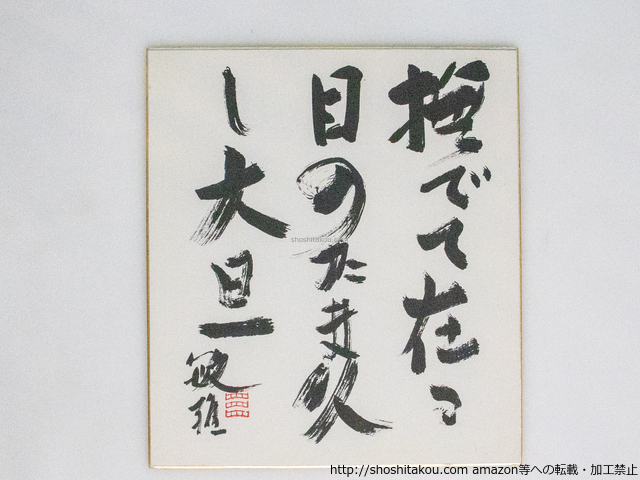 撫でて在る
目のたま久
し大旦
敏雄
shoshitakou.com
http://shoshitakou.com amazon等への転載・加工禁止